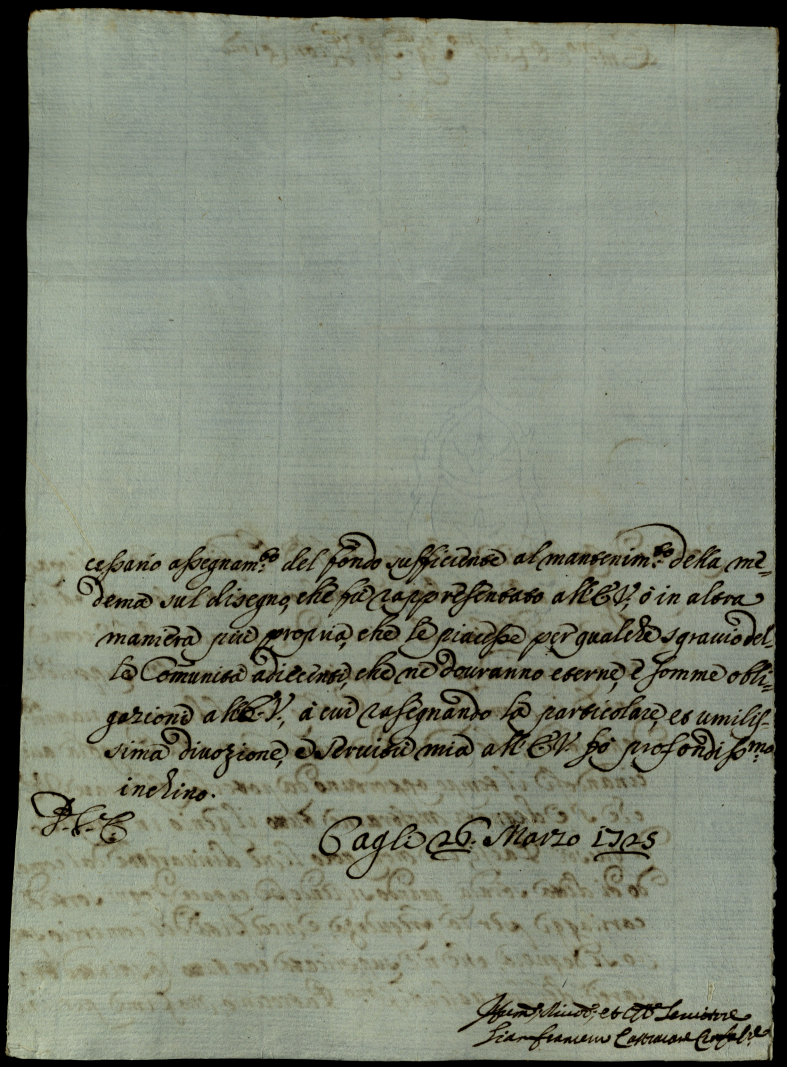 cessario assegnam.to del fondo sufficiente al mantenim.to della me-
dema sul disegno, che fù rappresentato all'E.V., ò in altra
maniera più propria, che le piacesse per qualche sgravio del-
le Comunità adiacenti, che ne dovranno eterne, e somme obli-
gazione all'E.V., à cui rasegnando la particolare, et umilis-
sima divozione, e servitù mia all'E.V. fò profondiss.mo
inchino.
D. V. E.
Cagli 26. Marzo 1725
Hum.o Divot.o et Obl. Servitore
Gianfrancesco